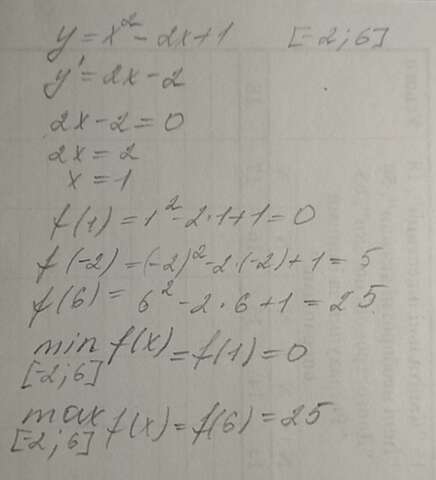 y = x² - 2x + 1 [-2; 6]
y' = 2x - 2
2x - 2 = 0
2x = 2
x = 1
f(1) = 1² - 2·1 + 1 = 0
f(-2) = (-2)² - 2·(-2) + 1 = 5
f(6) = 6² - 2·6 + 1 = 25
min f(x) = f(1) = 0
[-2; 6]
max f(x) = f(6) = 25
[-2; 6]